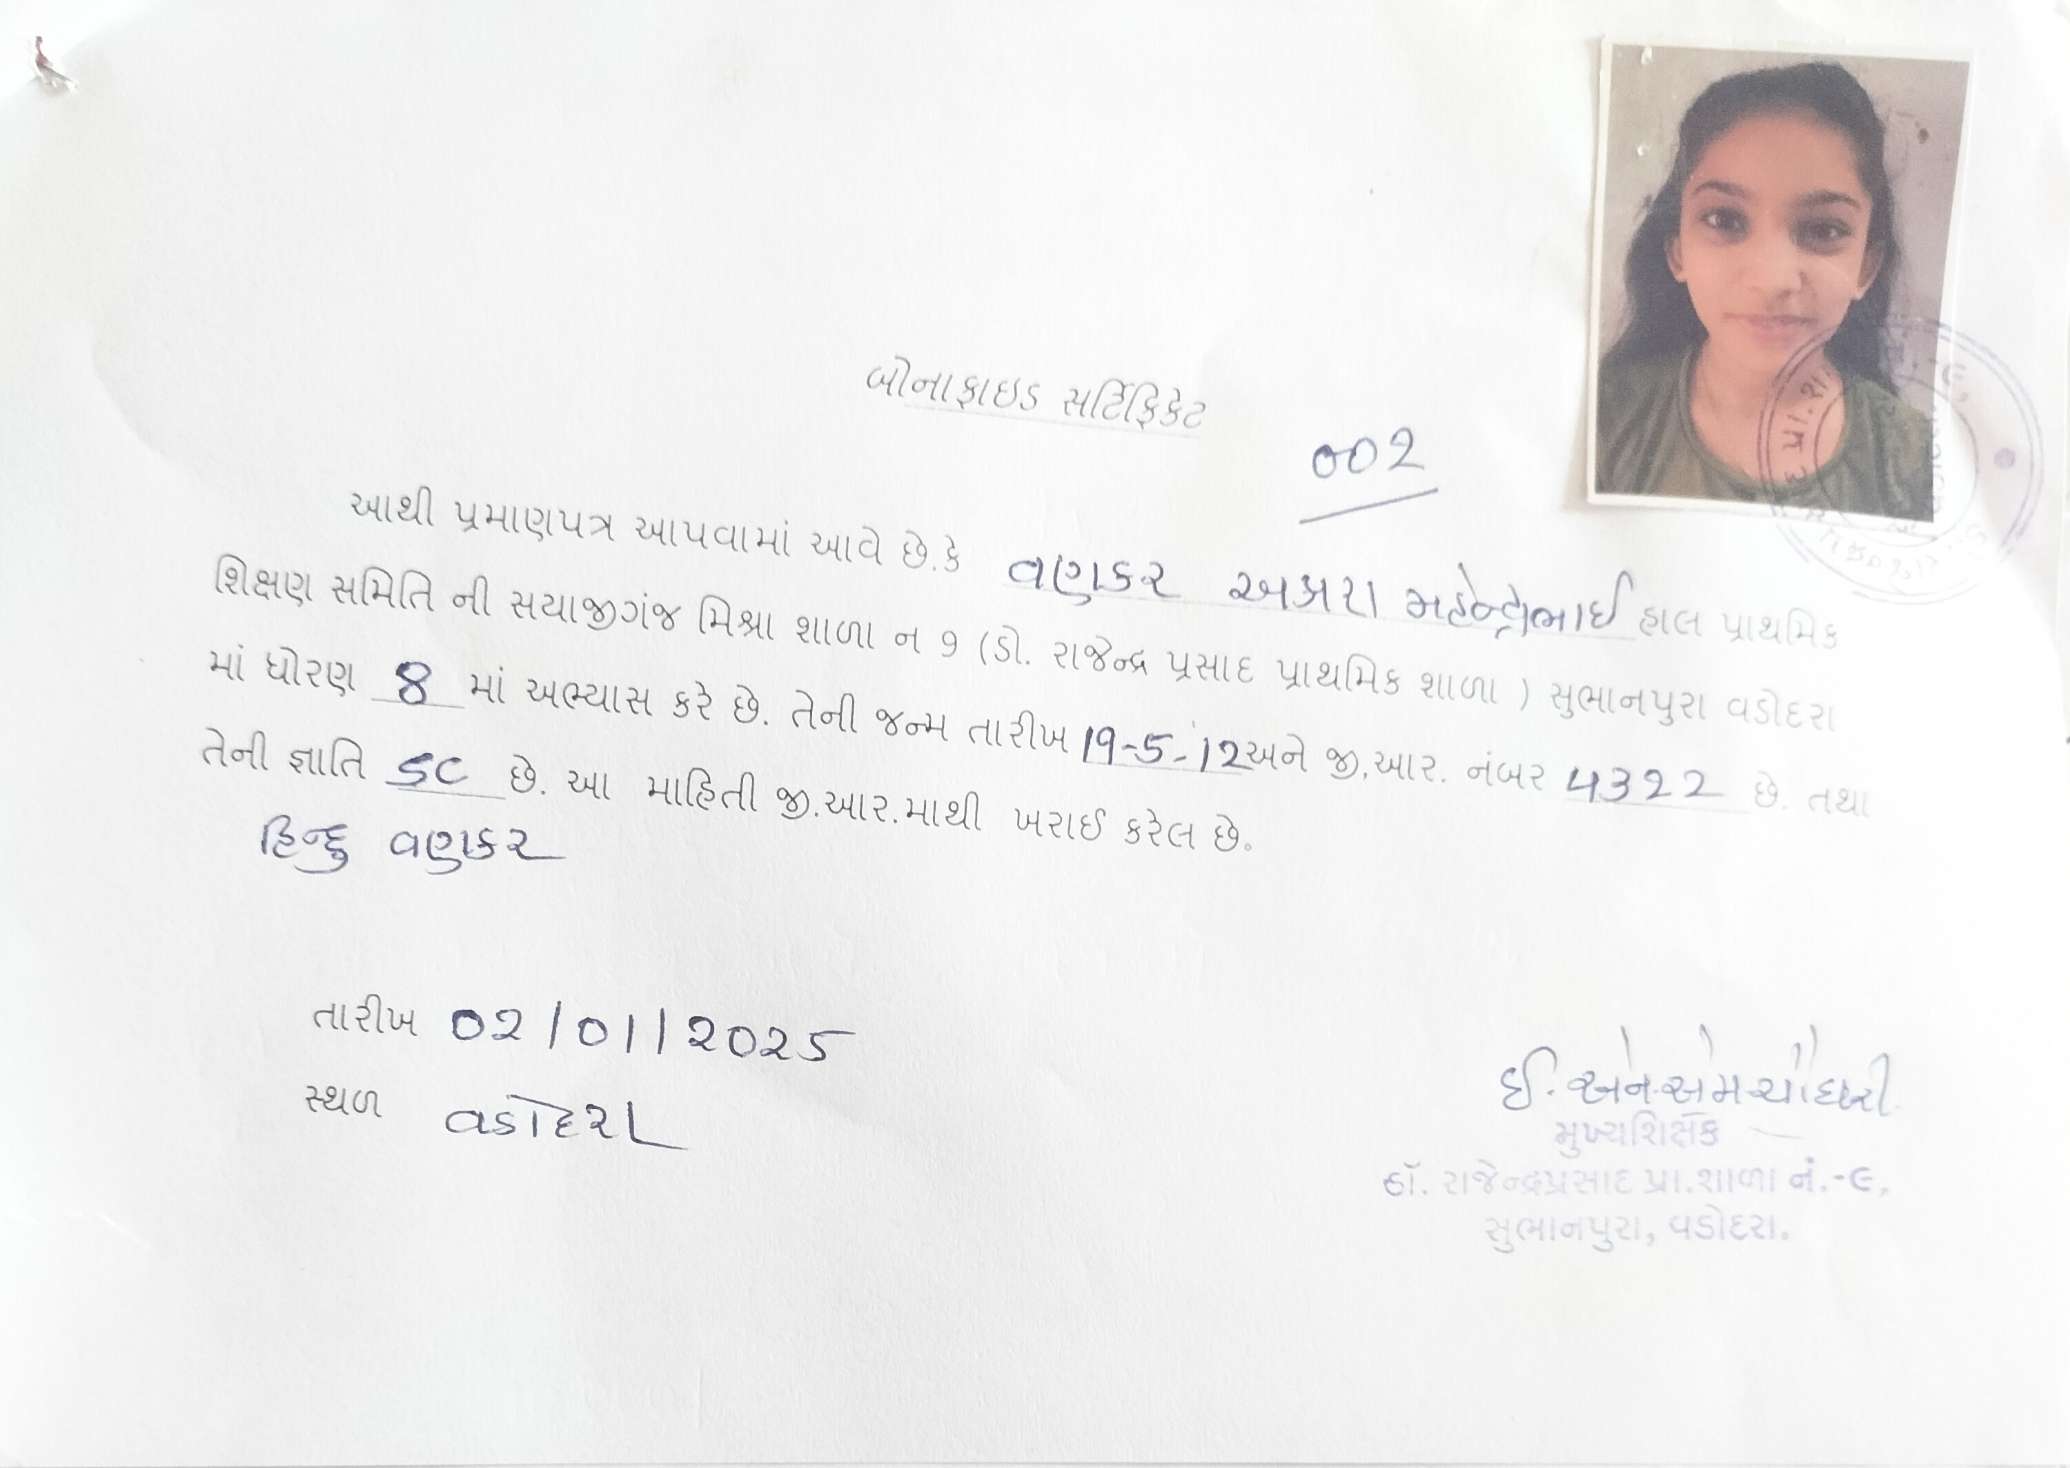 બોનાફાઇડ સર્ટિફિકેટ
002
આથી પ્રમાણપત્ર આપવામાં આવે છે.કે વણકર મહેન્દ્રભાઈ હાલ પ્રાથમિક
શિક્ષણ સમિતિ ની સયાજીગંજ મિશ્રા શાળા ન 9 (ડો. રાજેન્દ્ર પ્રસાદ પ્રાથમિક શાળા ) સુભાનપુરા વડોદરા
માં ધોરણ 8 માં અભ્યાસ કરે છે. તેની જન્મ તારીખ 19-5-12 અને જી.આર. નંબર 4322 છે. તથા
તેની જ્ઞાતિ SC છે. આ માહિતી જી.આર.માથી ખરાઈ કરેલ છે.
હિન્દુ વણકર
તારીખ 02/01/2025
સ્થળ વડોદરા
ઈ. એન.એમ ચૌધરી
મુખ્યશિક્ષક
ડૉ. રાજેન્દ્રપ્રસાદ પ્રા.શાળા નં.-૯,
સુભાનપુરા, વડોદરા.